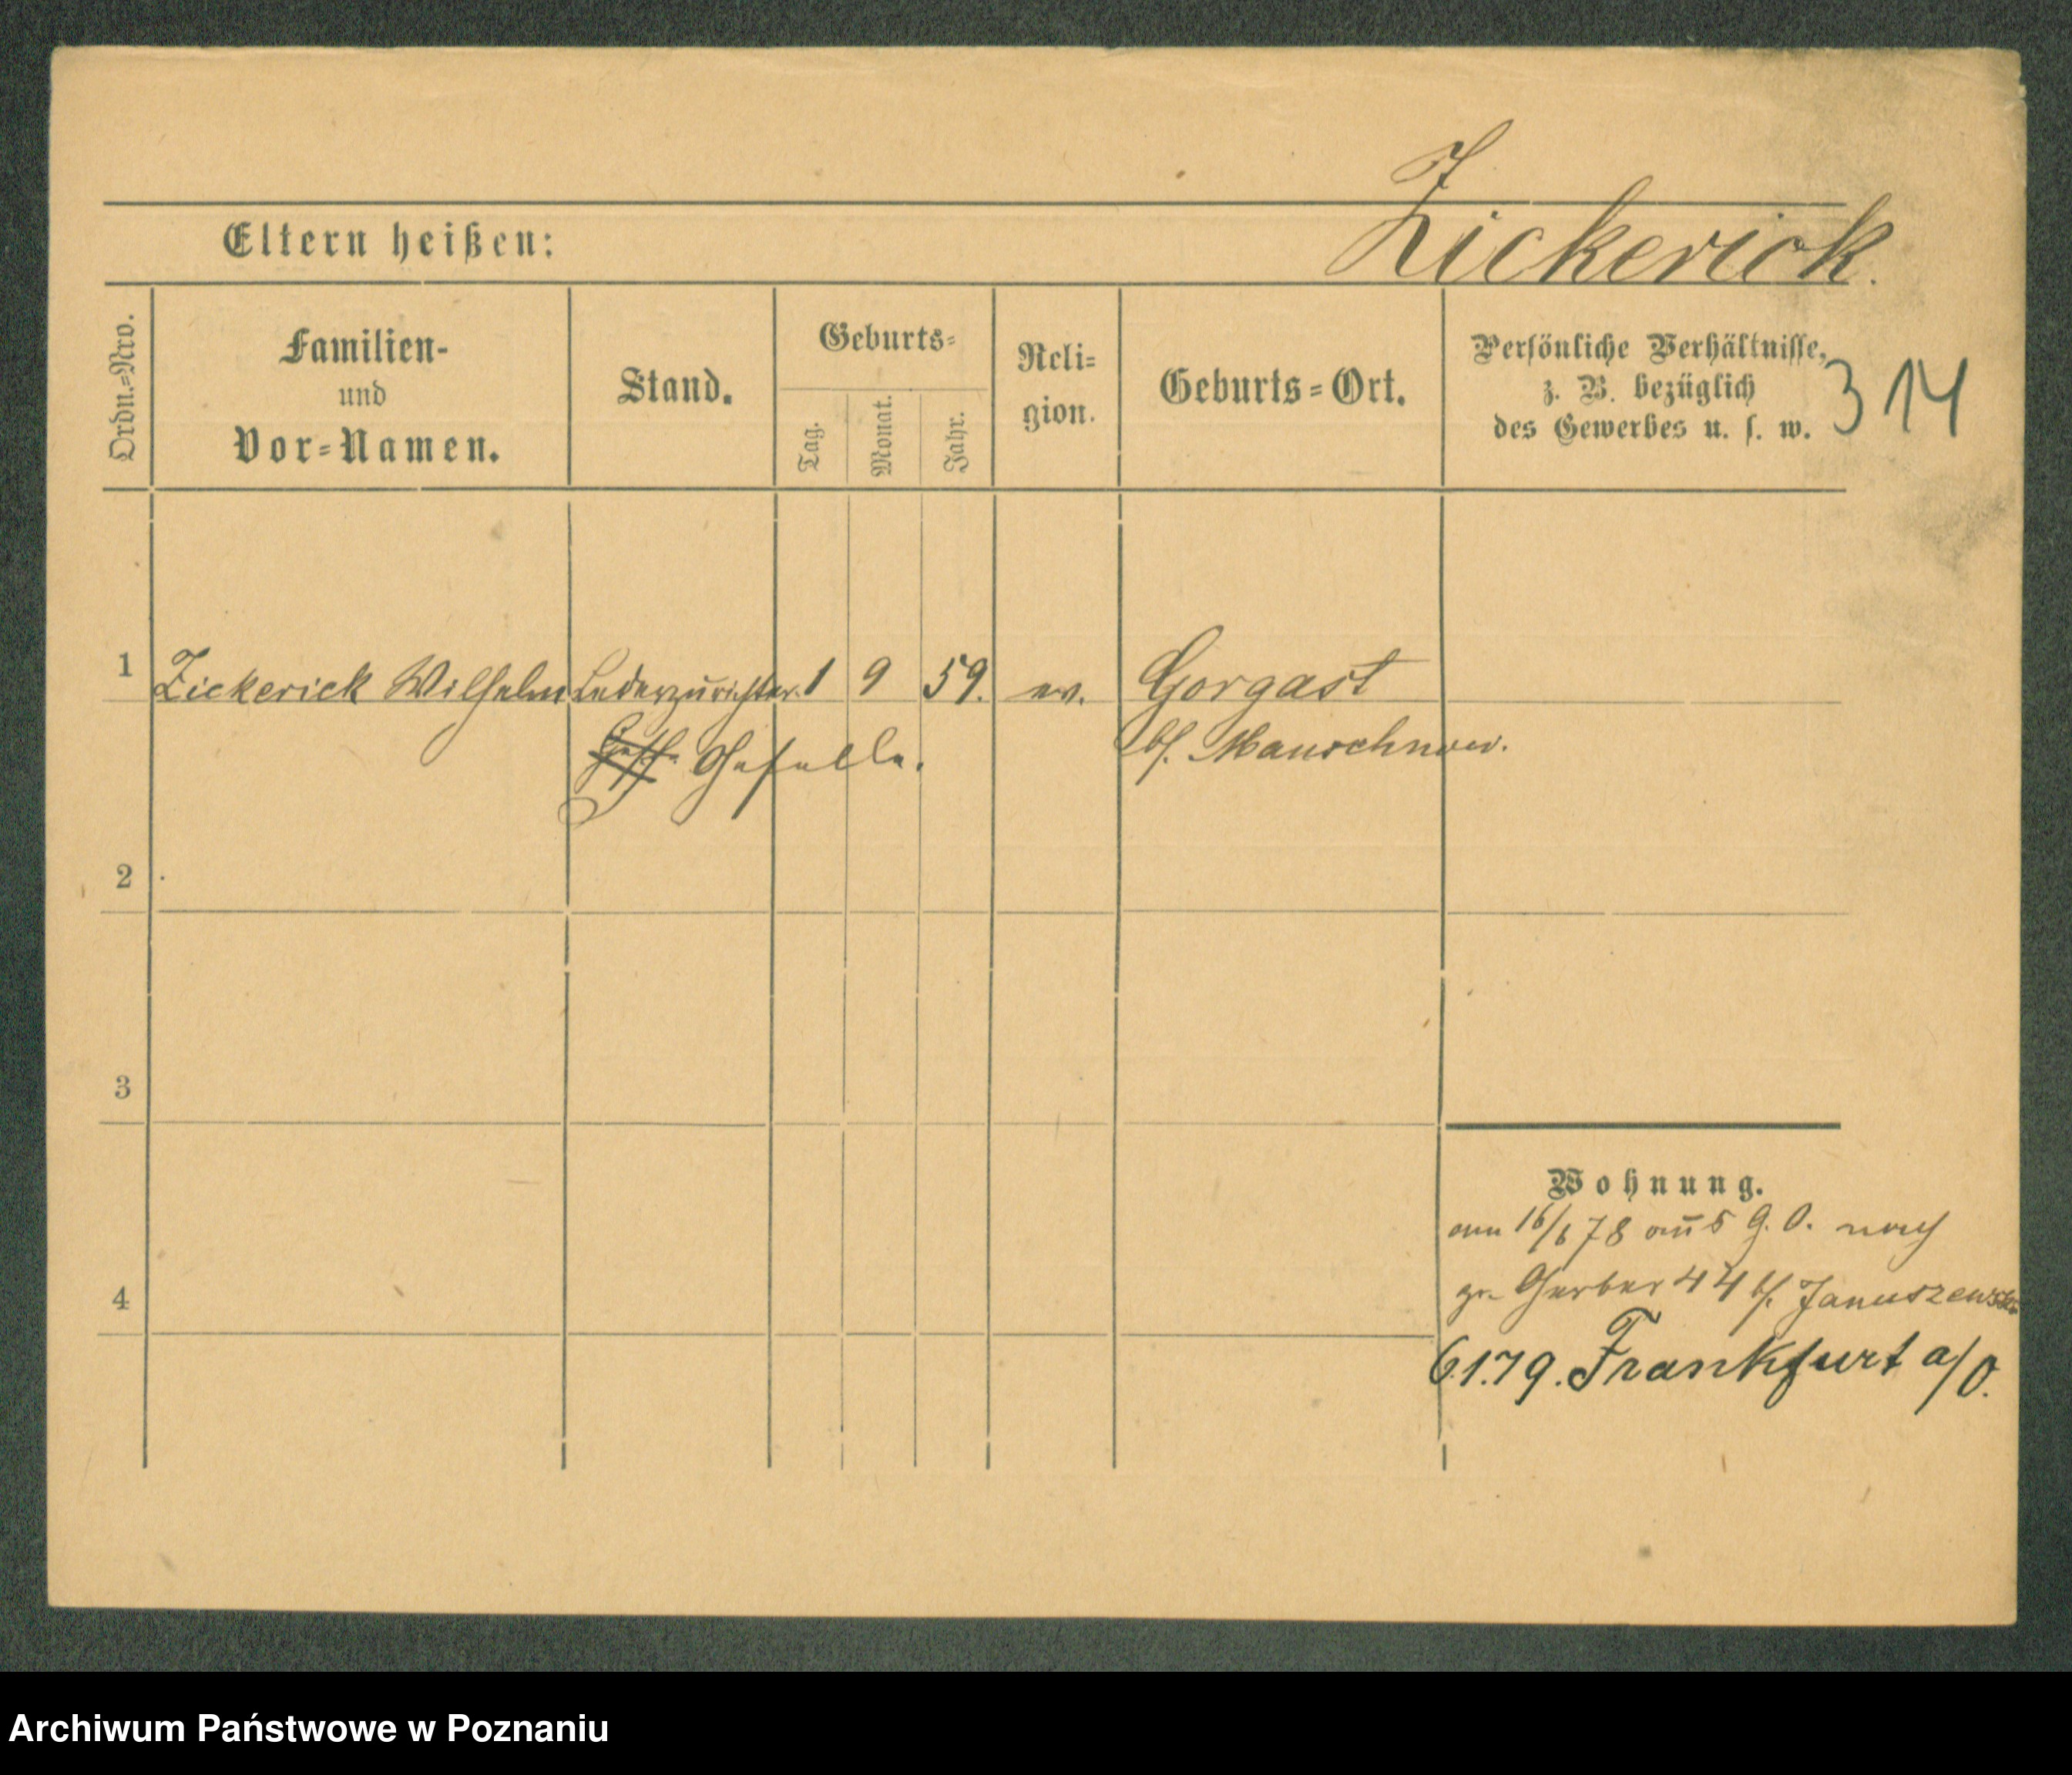 Zickerick.
Eltern heißen:
Ordn.=Nro.
Familien-
und
Vor=Namen.
Stand.
Geburts=
Tag.
Monat.
Jahr.
Reli=
gion.
Geburts=Ort.
Persönliche Verhältnisse,
z. B. bezüglich
des Gewerbes u. s. w.
314
1 Zickerick Wilhelm Lederzurichter. 1 9 59. ev. Gorgast
Geselle. bei Manschnow.
2
3
4
Wohnung.
am 16/6 78 aus G. O. nach
gr. Gerber 44 b/ Januszewski
6.1.79. Frankfurt a/O.
Archiwum Państwowe w Poznaniu